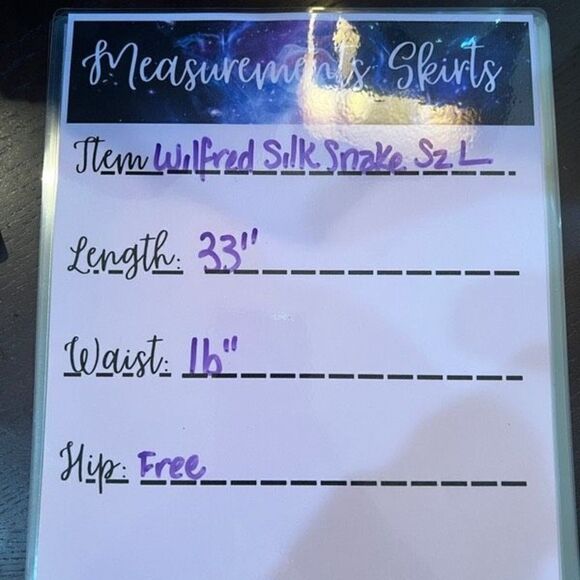 Measurements Skirts
Item Wilfred Silk Snake Sz L
Length: 33"
Waist: 16"
Hip: Free